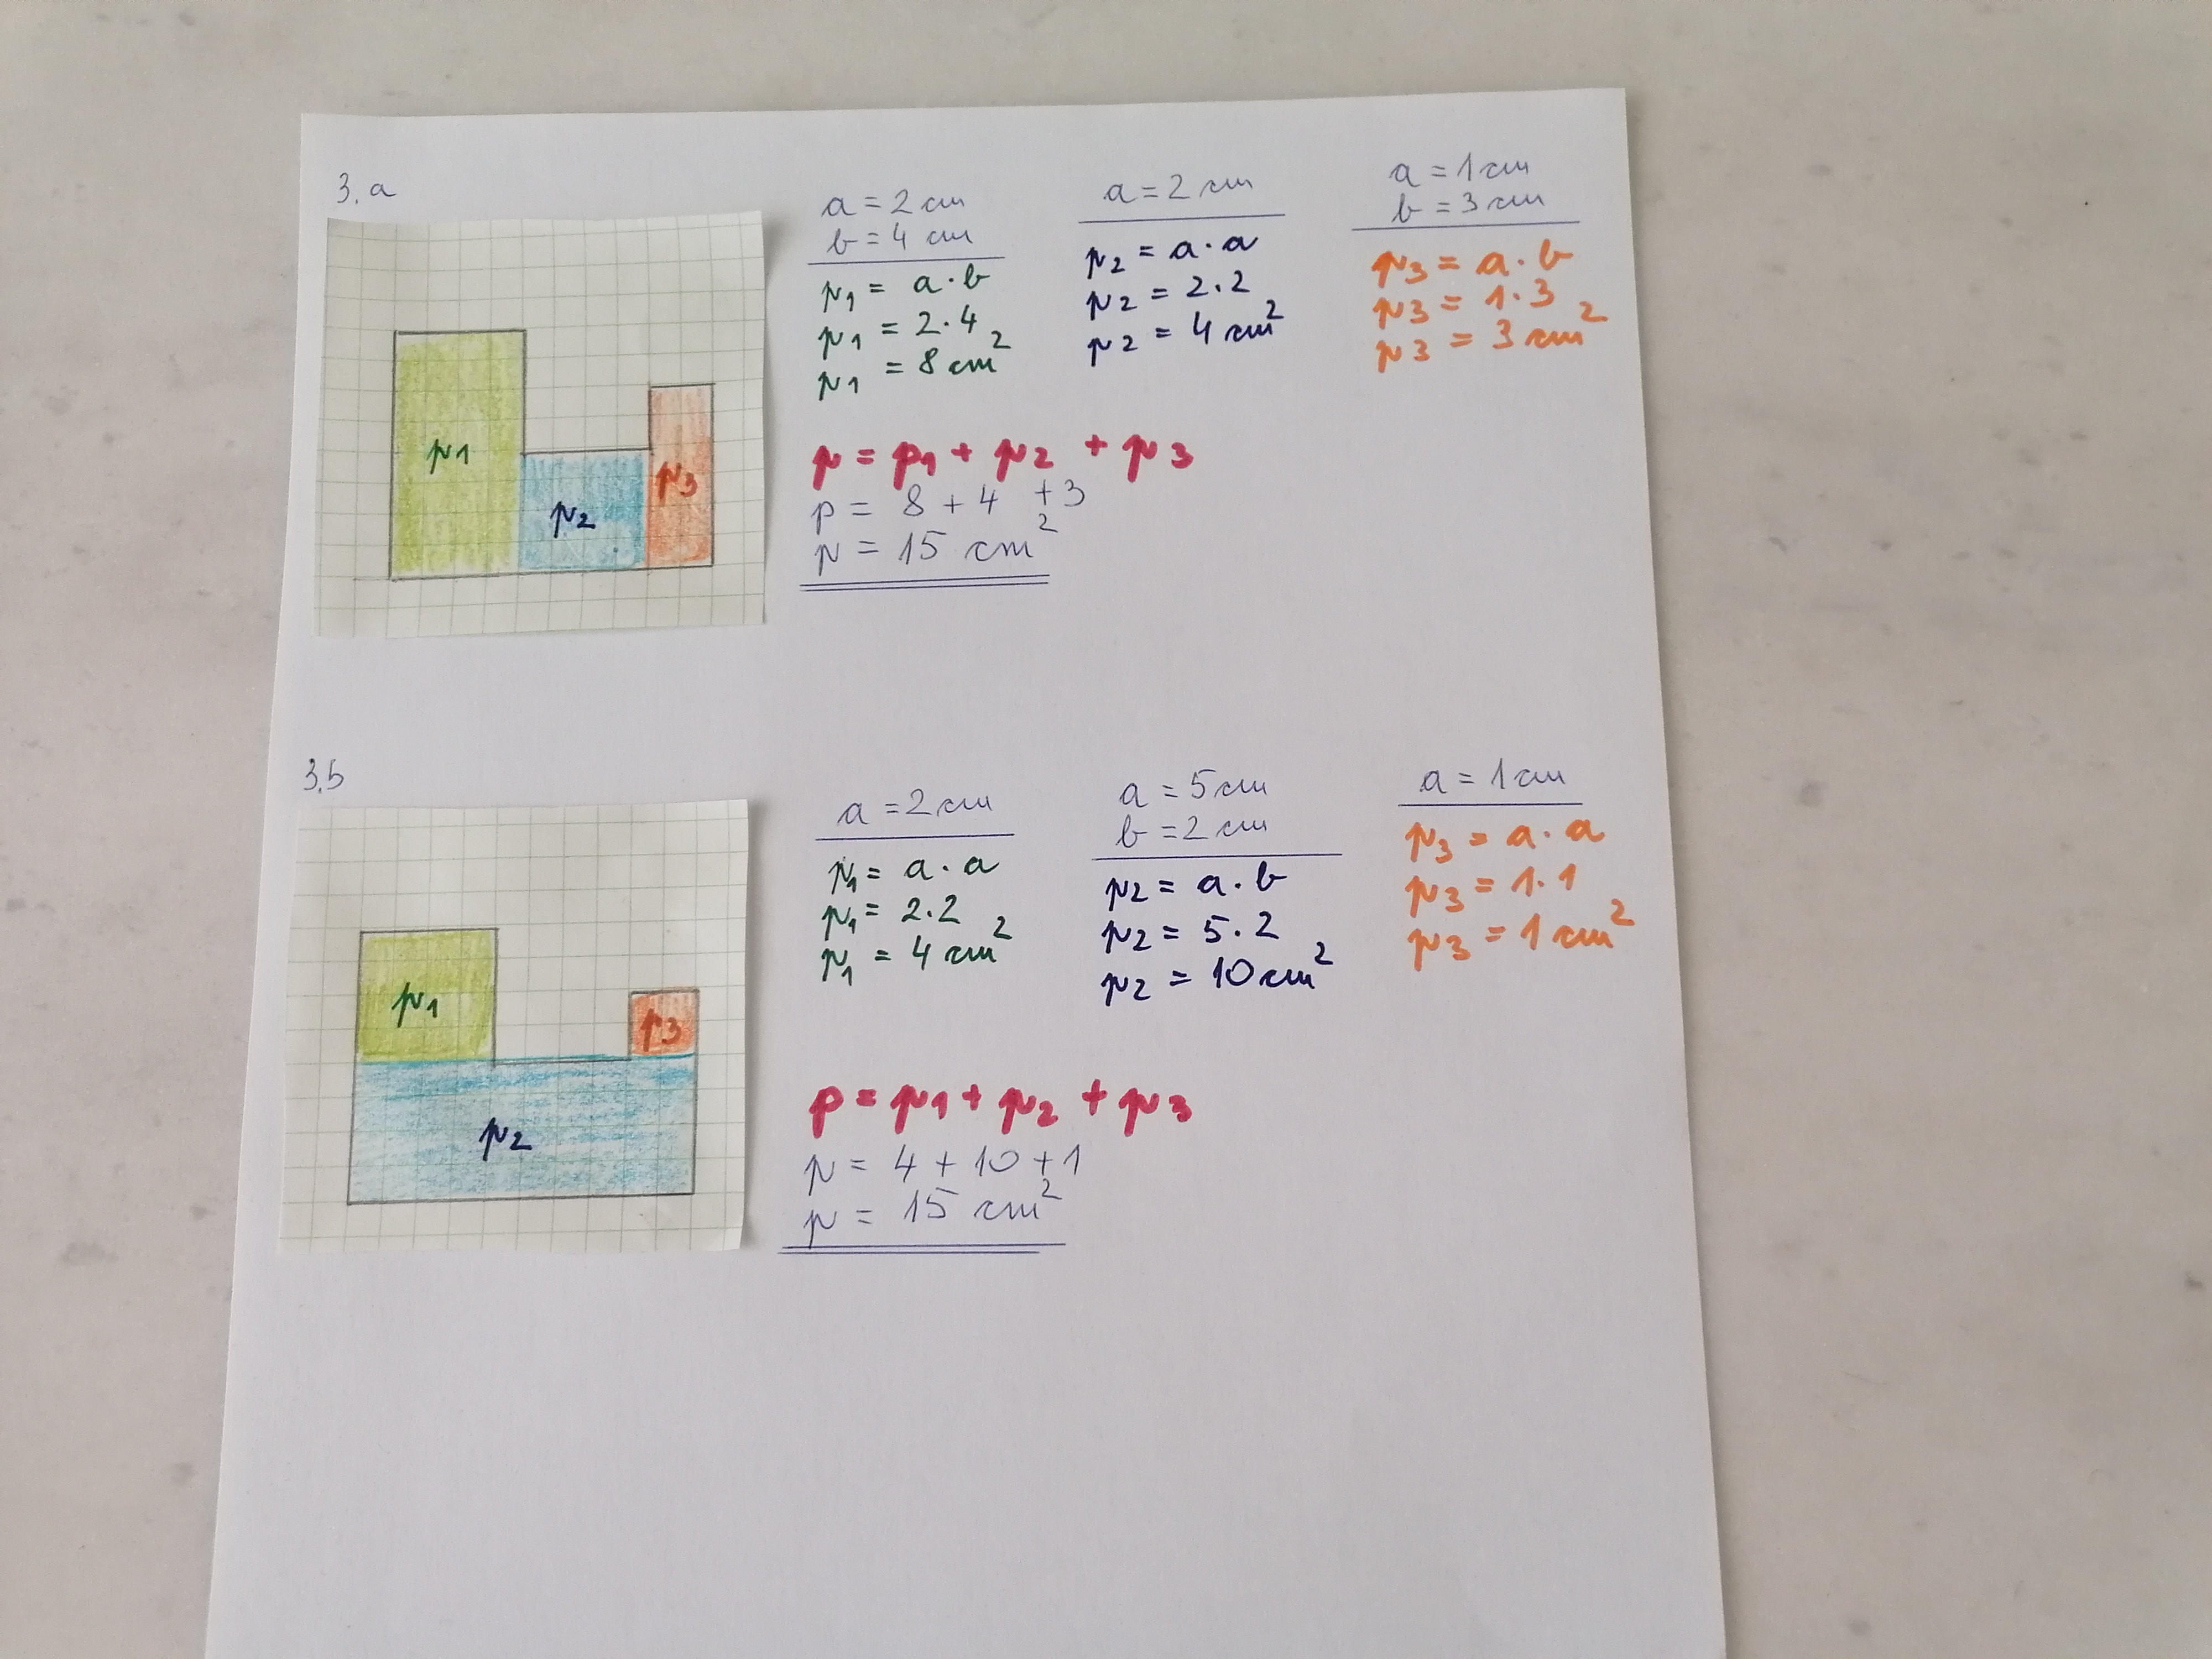 3. a
p1
p2
p3
a = 2 cm
b = 4 cm
p1 = a · b
p1 = 2 · 4
p1 = 8 cm²
a = 2 cm
p2 = a · a
p2 = 2 . 2
p2 = 4 cm²
a = 1 cm
b = 3 cm
p3 = a · b
p3 = 1 · 3
p3 = 3 cm²
p = p1 + p2 + p3
p = 8 + 4 + 3
p = 15 cm²
3. b
p1
p2
p3
a = 2 cm
p1 = a · a
p1 = 2 . 2
p1 = 4 cm²
a = 5 cm
b = 2 cm
p2 = a · b
p2 = 5 . 2
p2 = 10 cm²
a = 1 cm
p3 = a · a
p3 = 1 . 1
p3 = 1 cm²
p = p1 + p2 + p3
p = 4 + 10 + 1
p = 15 cm²